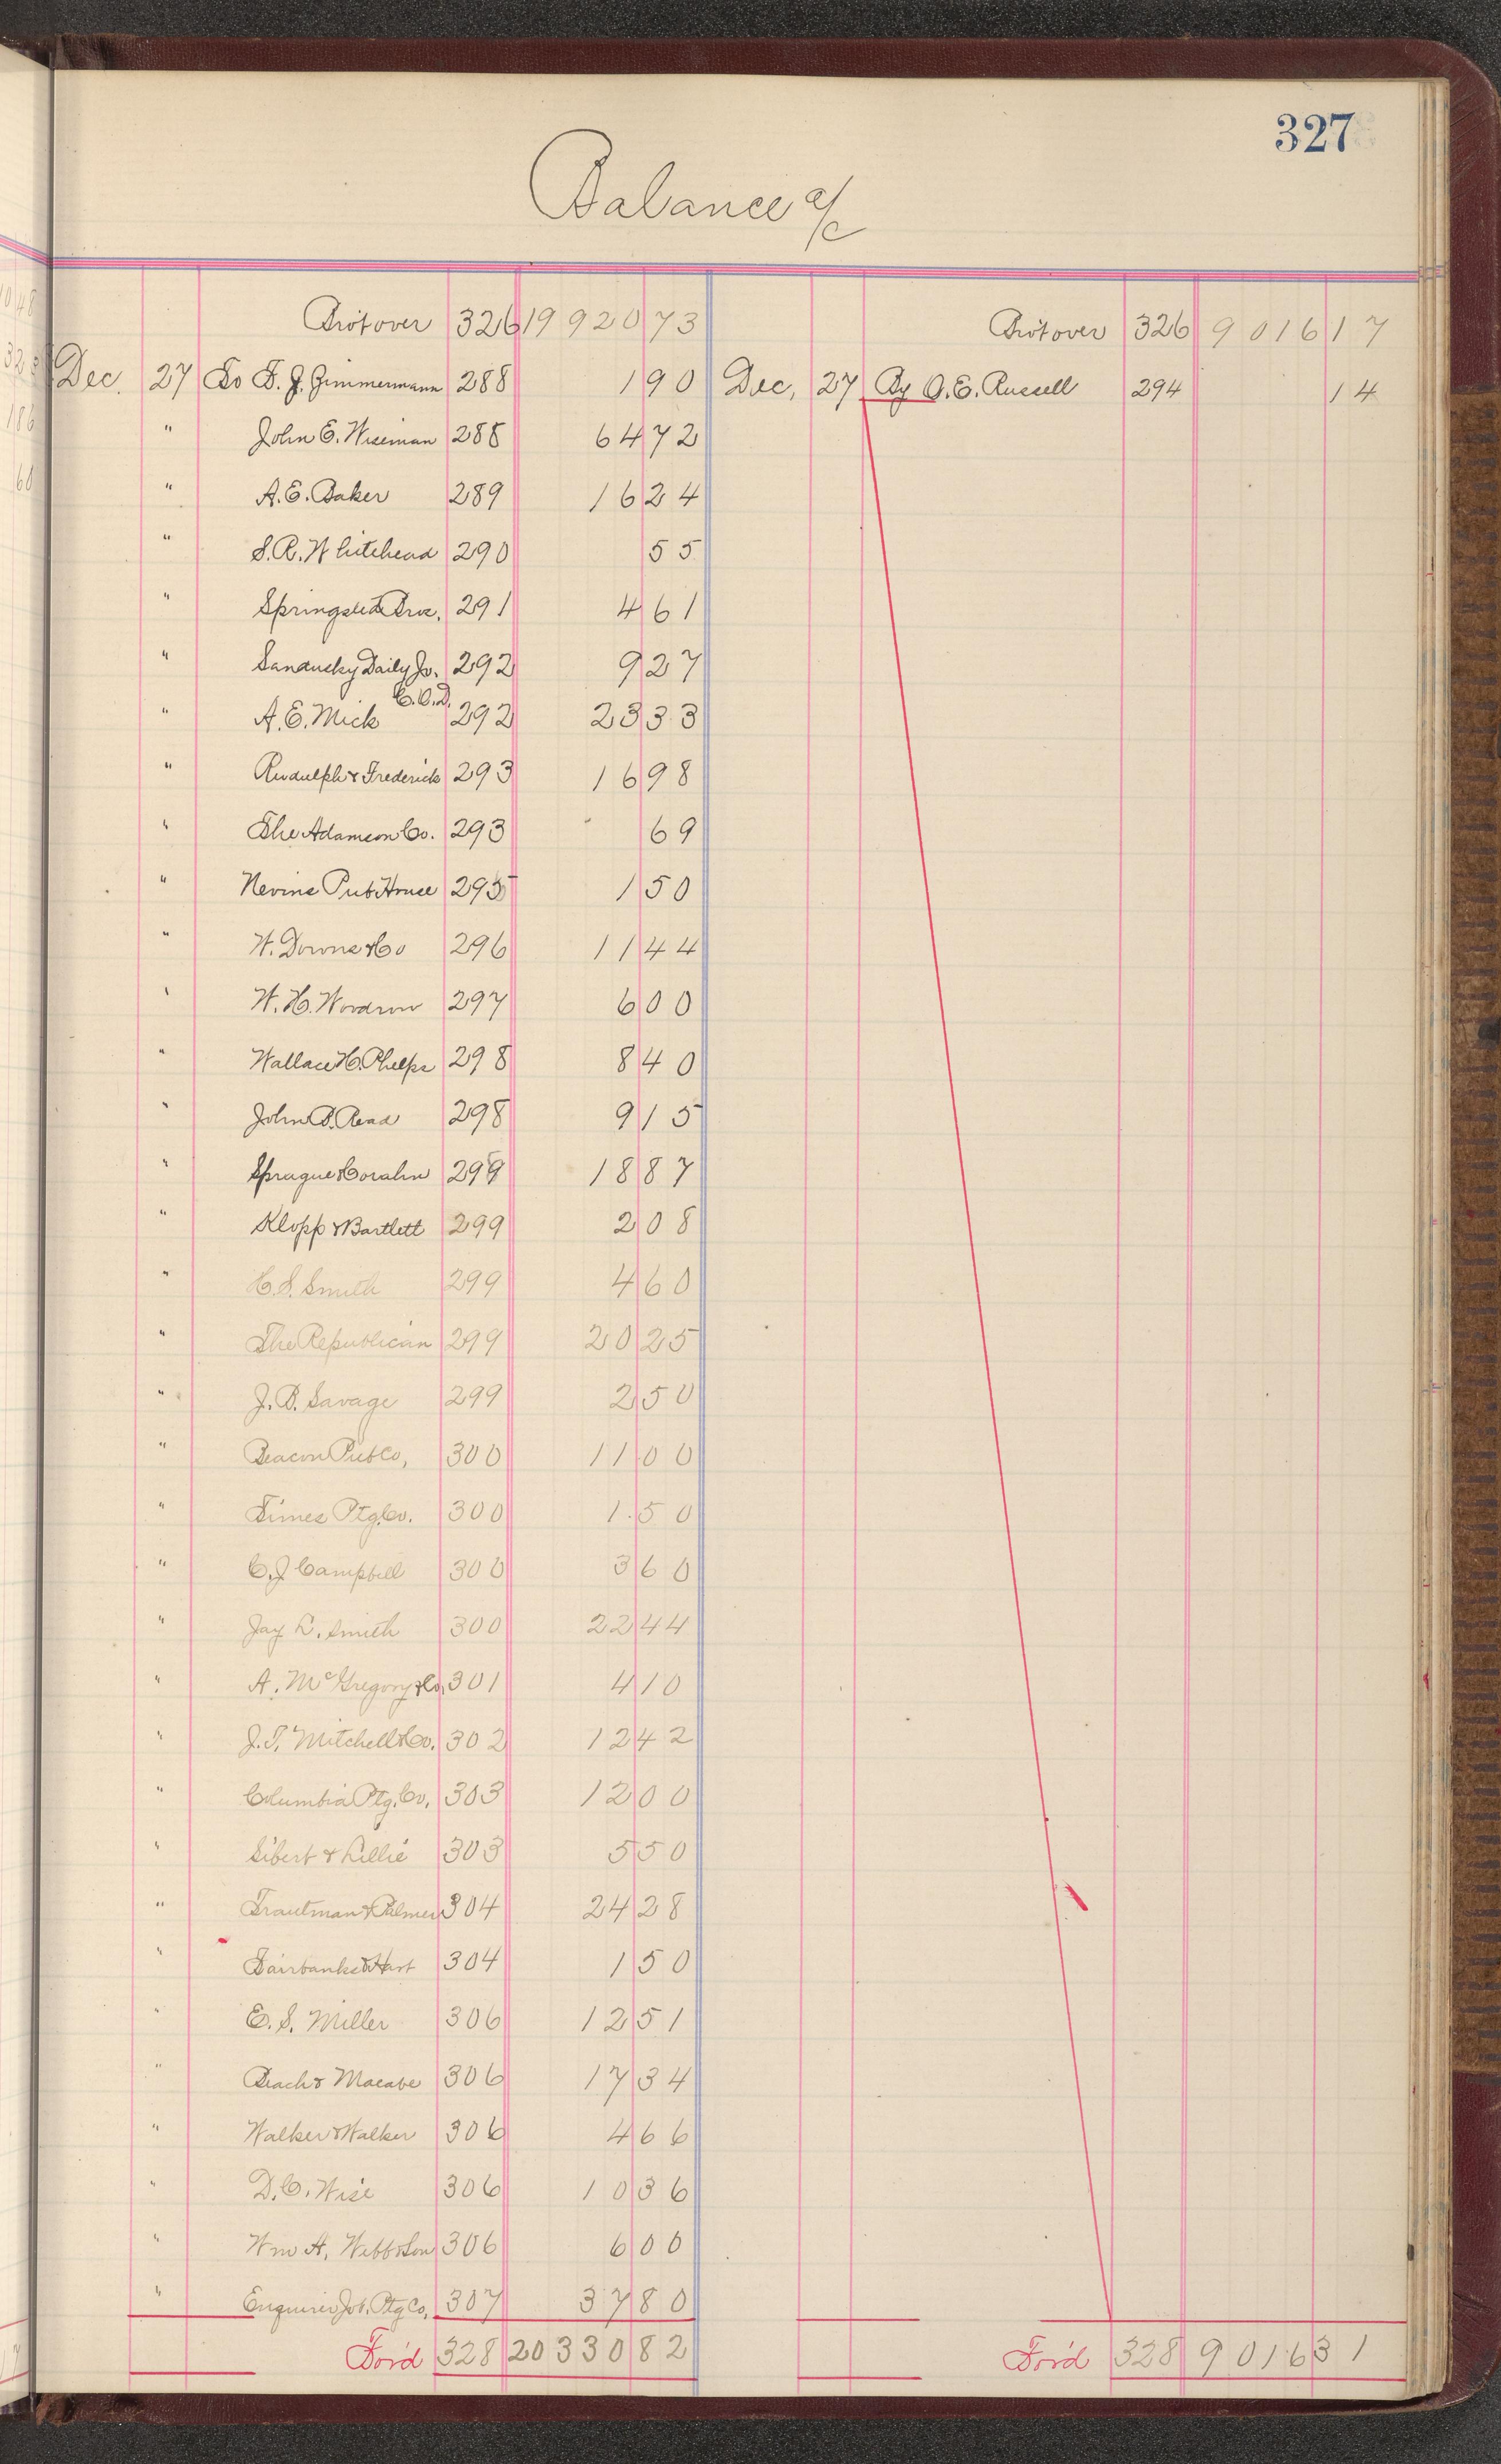 327
Balance a/c
Bro't over 326 19920 73 Bro't over 326 9016 17
Dec. 27 To F. J. Zimmermann 288 1 90 Dec, 27 By O. E. Russell 294 14
" John E. Wiseman 288 64 72
" A. E. Baker 289 16 24
" S. R. Whitehead 290 55
" Springsted Bros. 291 4 61
" Sandusky Daily Jo. 292 9 27
" A. E. Mick C.O.D. 292 23 33
" Rudulph & Frederick 293 16 98
" The Adamson Co. 293 69
" Nevins Pub House 295 1 50
" W. Downs & Co 296 11 44
" W. H. Woodrow 297 6 00
" Wallace H. Phelps 298 8 40
" John B. Read 298 9 15
" Sprague 299 18 87
" Klopp & Bartlett 299 2 08
" C. S. Smith 299 4 60
" The Republican 299 20 25
" J. B. Savage 299 2 50
" Beacon Pub Co, 300 11 00
" Times Ptg. Co. 300 1 50
" C. J. Campbell 300 3 60
" Jay L. Smith 300 22 44
" A. McGregory & Co. 301 4 10
" J. T. Mitchell & Co. 302 12 42
" Columbia Ptg. Co. 303 12 00
" Sibert & Lillie 303 5 50
" Trautman & Palmer 304 24 28
" Fairbanks & Hart 304 1 50
" E. S. Miller 306 12 51
" Beach & Macabe 306 17 34
" Walker & Walker 306 4 66
" D. C. Wise 306 10 36
" Wm H. Webb & Son 306 6 00
" Enquirer Job. Ptg Co, 307 37 80
For'd 328 20330 82 For'd 328 9016 31